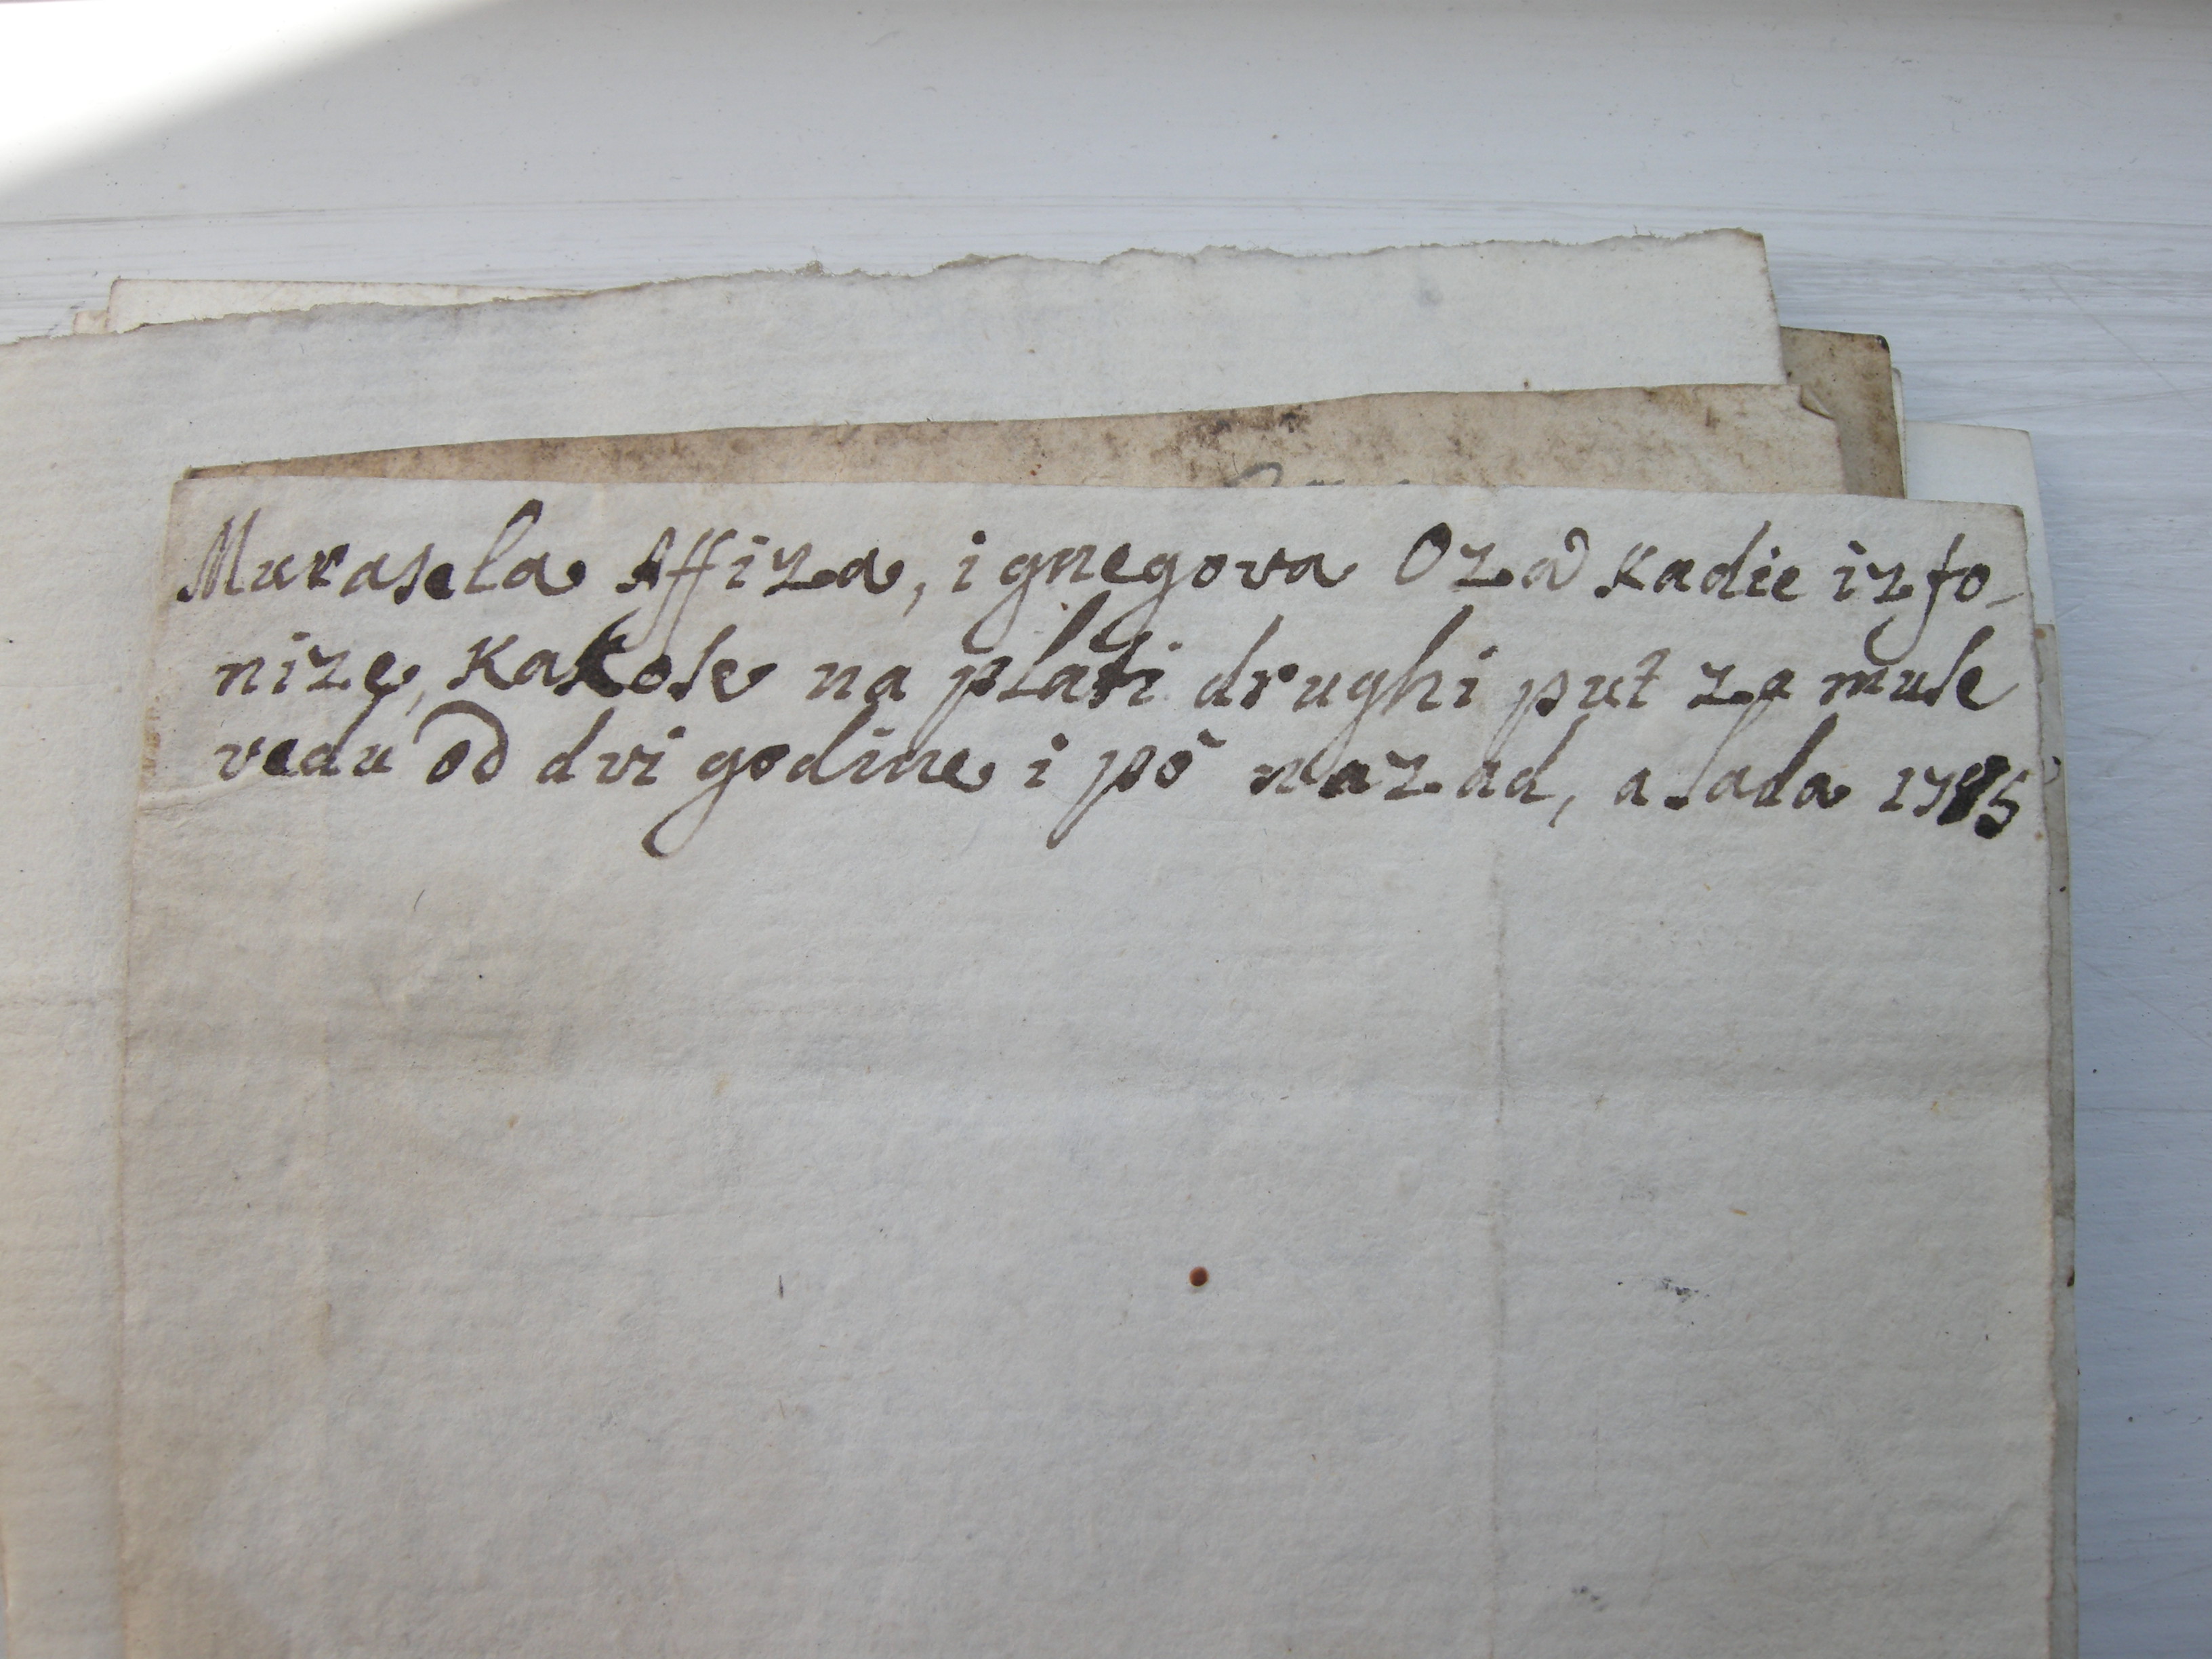 Murasela Affiza, i gnegova Oza kadie iz fo-
nize, kakose na plati drughi put za muse
vedu od dvi godine i pô nazad, a sada 1785